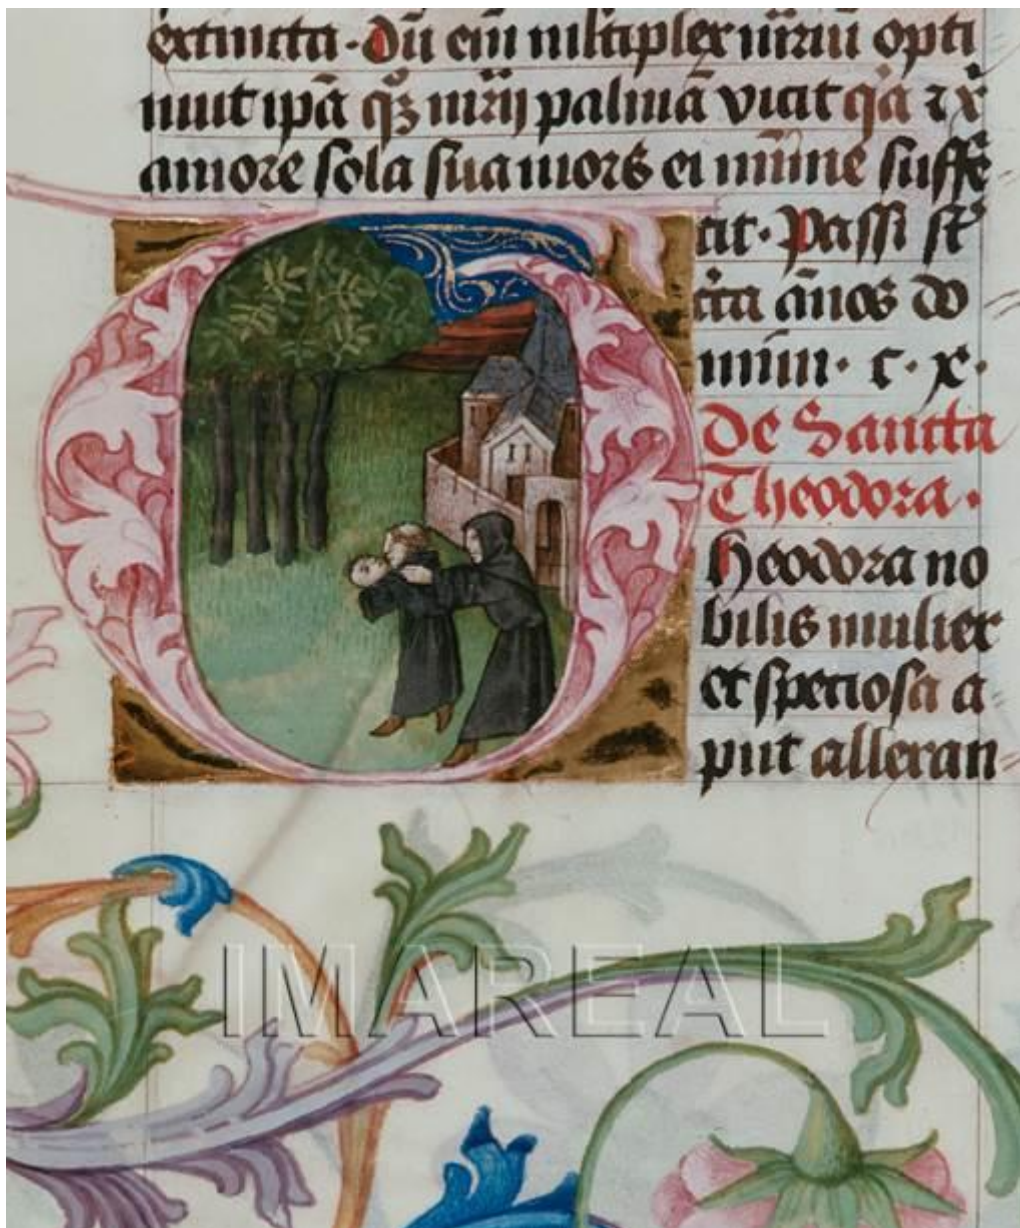 extincta. Dū em̄ mltiplex mr̄iū opti
nuit ipā qꝫ mr̄ij palmā vicit q̇a ꝛ x̄
amore sola sua mors ei mīme suffe
cit. Passi st̄
cīta ān̄os do
mini. c. x.
De Sancta
Theodora.
heodora no
bilis mulier
et speciosa a
put alleran
IMAREAL